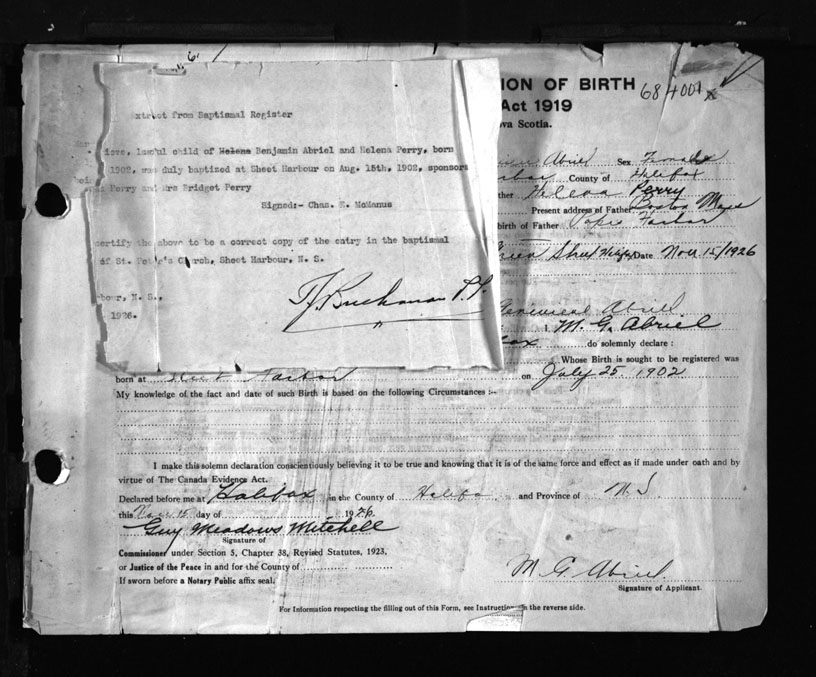 xtract from Baptismal Register
lawful child of Helena Benjamin Abriel and Helena Perry, born
1902, was duly baptized at Sheet Harbour on Aug. 15th, 1902, sponsors
Perry and Mrs Bridget Perry
Signed:- Chas. E. McManus
certify the above to be a correct copy of the entry in the baptismal
of St. Peter's Church, Sheet Harbour, N. S.
bour, N. S.,
1926.
T.J. Buchanan P.P.
ION OF BIRTH
684001
Act 1919
ova Scotia.
Abriel Sex Female
arbor County of Halifax
ther Helena Perry
Present address of Father Boston Mass
birth of Father Pope Harbor
Street Date Nov. 15/1926
Abriel
I, M. G. Abriel
fax do solemnly declare :
Whose Birth is sought to be registered was
born at Sheet Harbor on July 25. 1902
My knowledge of the fact and date of such Birth is based on the following Circumstances :-
I make this solemn declaration conscientiously believing it to be true and knowing that it is of the same force and effect as if made under oath and by
virtue of The Canada Evidence Act.
Declared before me at Halifax in the County of Halifa and Province of N. S
this Nov. 15 day of 1926.
Guy Meadows Mitchell
Signature of
Commissioner under Section 5, Chapter 38, Revised Statutes, 1923,
or Justice of the Peace in and for the County of
If sworn before a Notary Public affix seal.
M. G. Abriel
Signature of Applicant.
For Information respecting the filling out of this Form, see Instruction on the reverse side.